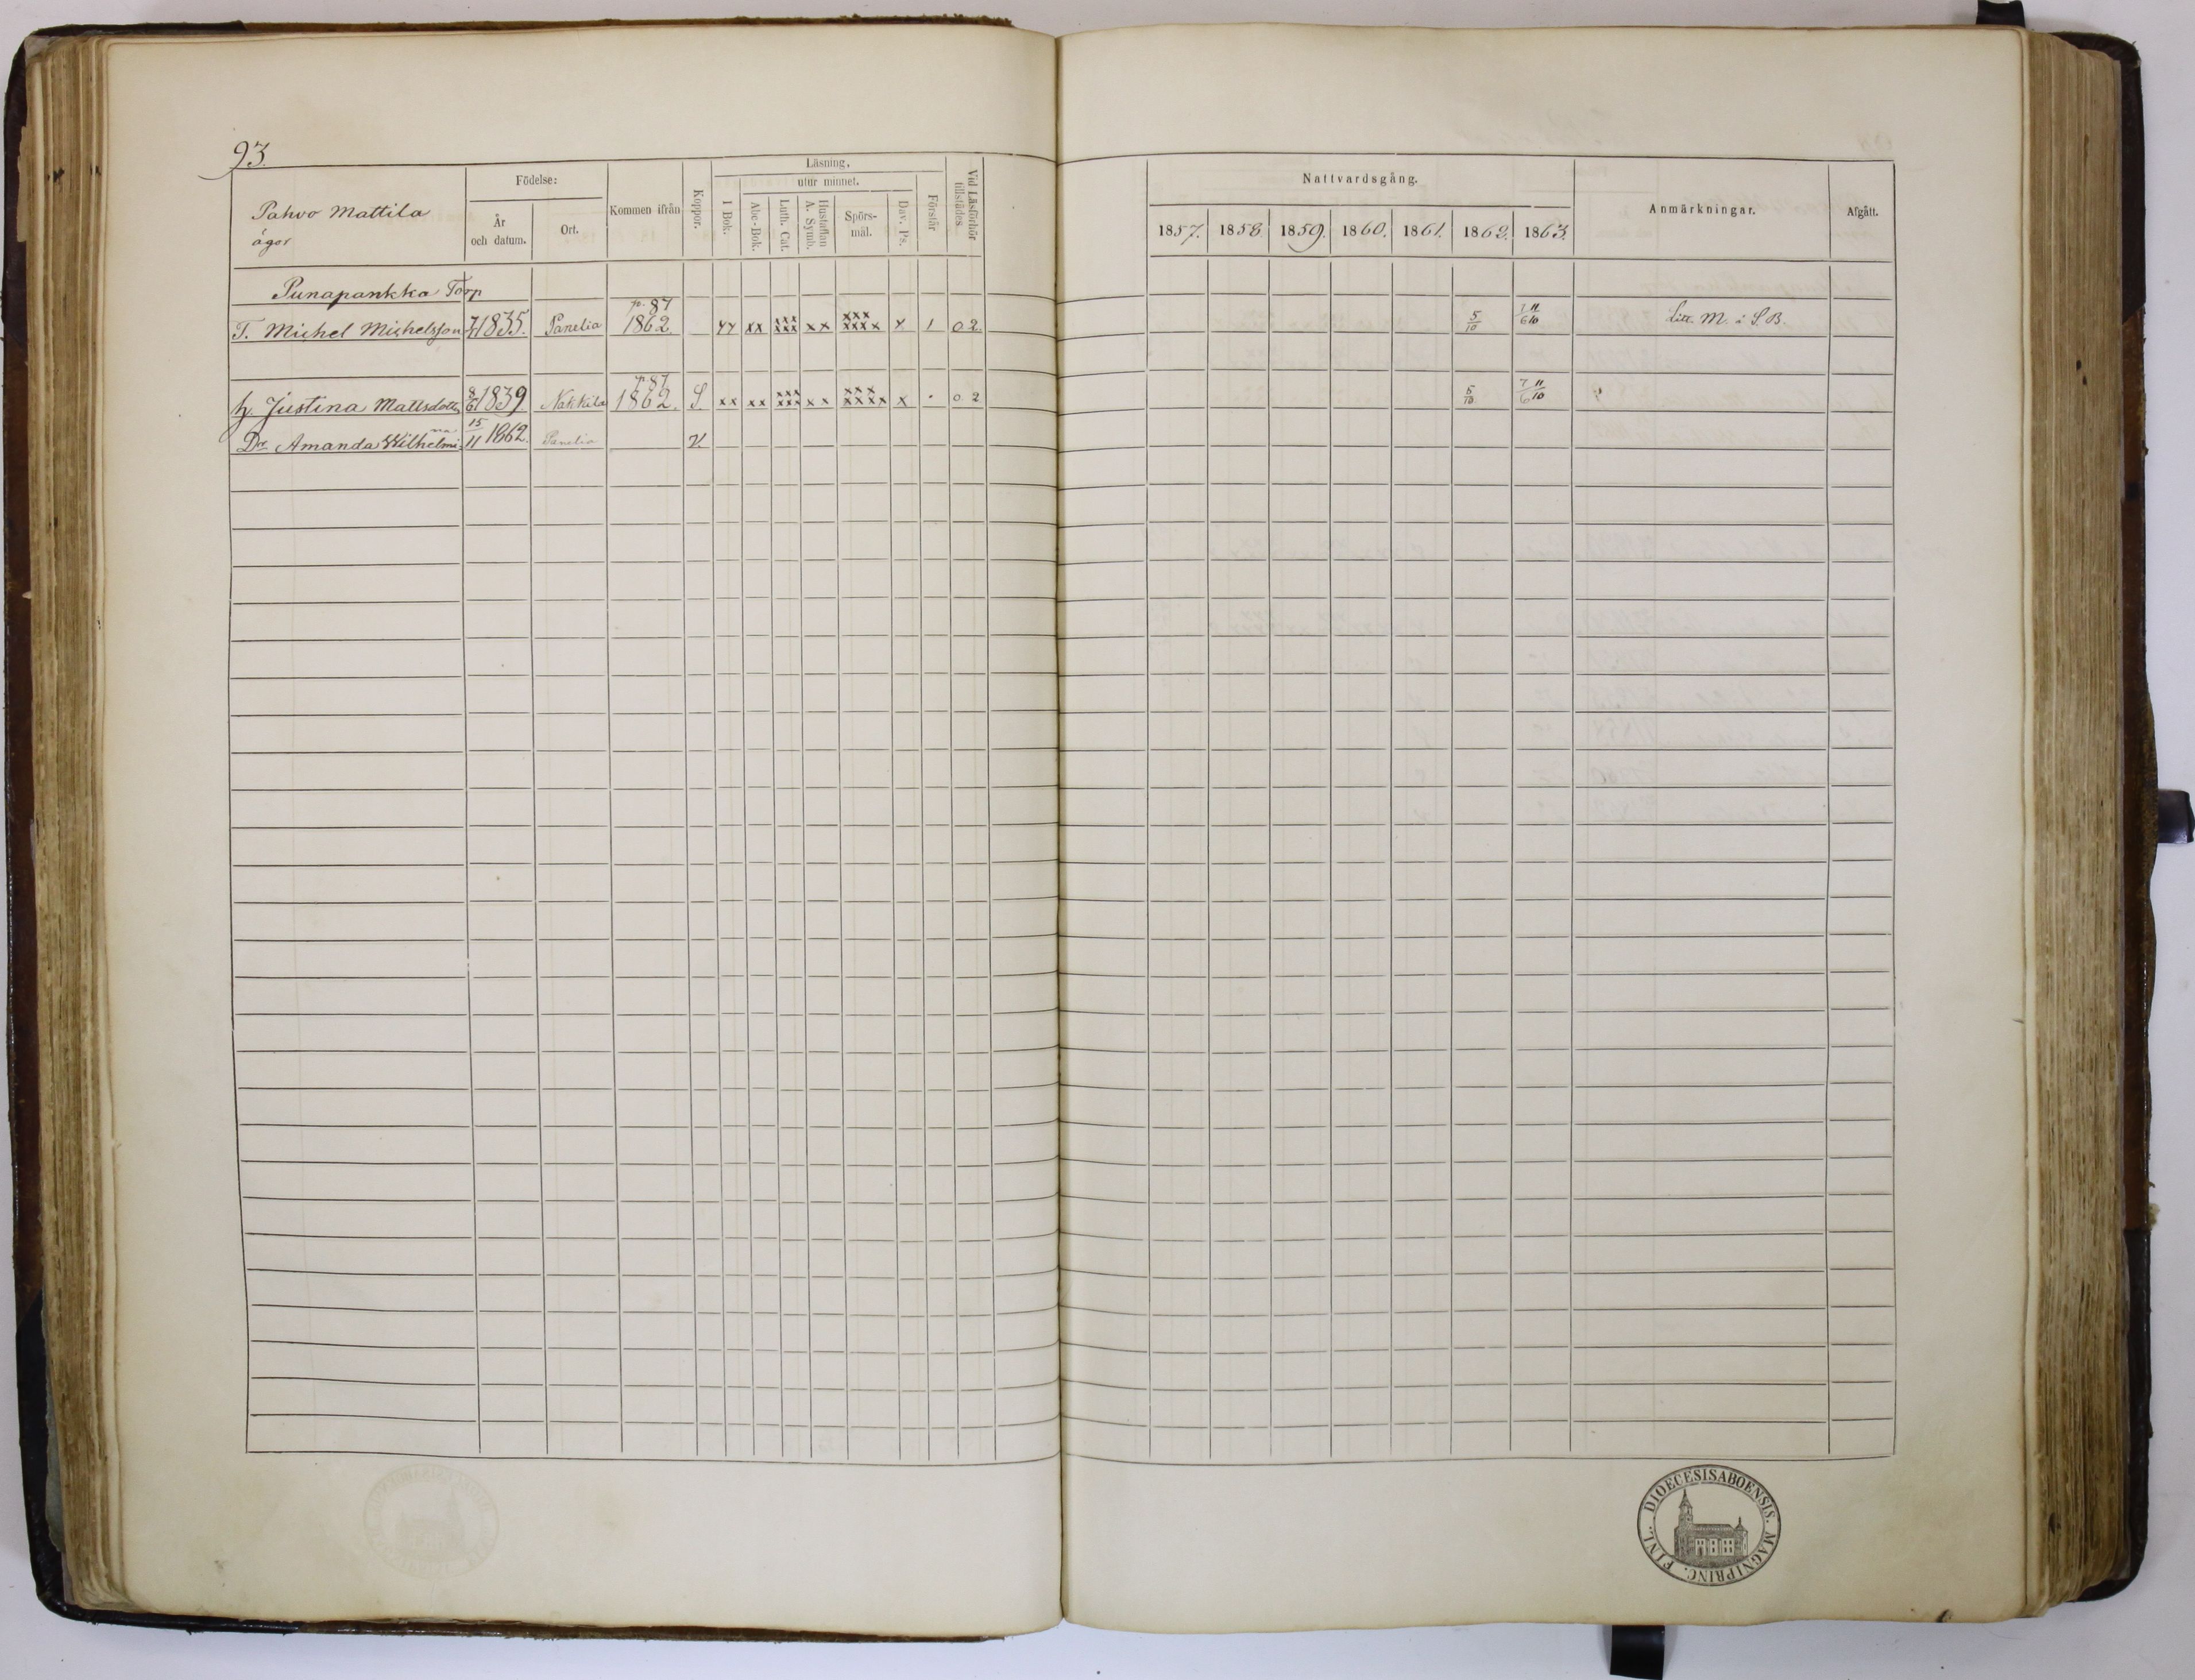 93.
Pahvo Mattila
ägor
Födelse:
År
och datum.
Ort.
Kommen ifrån
Koppor.
Läsning.
I Bok.
utur minnet.
Abc-Bok.
Luth. Cat.
Hustaflan
A. Symb.
Spörs-
mål.
Dav. Ps.
Förstår
Vid Läsförhör
tillstädes
Nattvardsgång.
1857. 1858 1859. 1860. 1861. 1862. 1863.
Anmärkningar.
Afgått.
Punapankka Torp
T. Michel Michelsson 1835. Panelia p. 87 1862. xx xx xxx xxx xx xxx xxxx x 1 02. 5/10 7 11 6 10 Litt. M. i S. B.
h. Justina Mattsdotter 8/6 1839. Nakkila p. 87 1862. S. xx xx xxx xxx xx xxx xxxx x . 02 5/10 7 11 6 10
Dr Amanda Wilhelmina 15/11 1862. Panelia V.
FINL. DIOECESIS ABOENSIS. MAGNI PRINC.